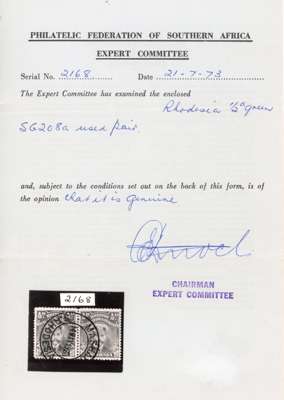 PHILATELIC FEDERATION OF SOUTHERN AFRICA
EXPERT COMMITTEE
Serial No. 2168 Date 21-7-73
The Expert Committee has examined the enclosed
Rhodesia ½d green
SG208a used pair.
and, subject to the conditions set out on the back of this form, is of
the opinion that it is genuine
CHAIRMAN
EXPERT COMMITTEE
2168